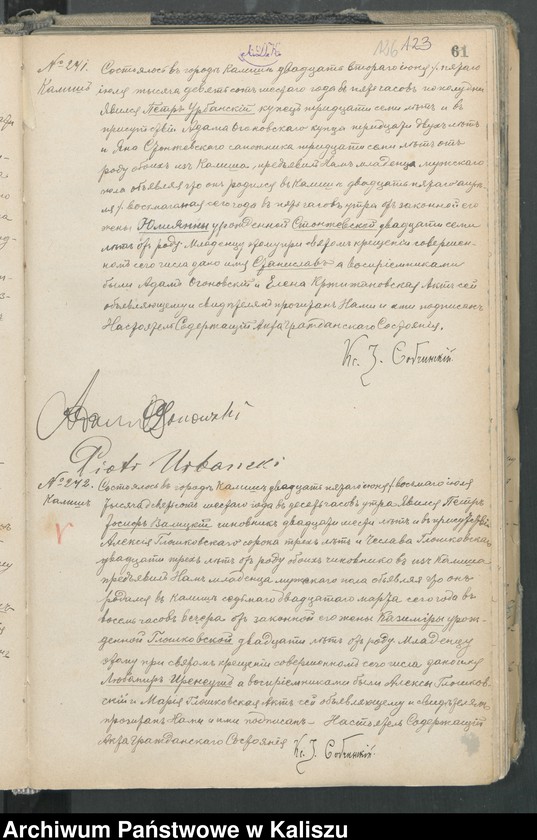 123
61
№ 241.
Калишъ
Состоялось въ городѣ Калишѣ двадцать втораго іюня /
іюля тысяча девятьсотъ шестаго года въ часовъ по полудни
Явился Петръ Урбанскій купецъ тридцати семи лѣтъ и въ
присутствіи Адама Огоновскаго купца тридцати двухъ лѣтъ
и Яна сапожника тридцати лѣтъ отъ
роду обоихъ изъ Калиша, предъявилъ Намъ младенца мужескаго
пола объявляя что онъ родился въ Калишѣ двадцать
сего года въ часовъ утра отъ законной его
жены Юліянны урожденной двадцати семи
лѣтъ отъ роду. Младенцу этому при святомъ крещеніи совершен-
номъ сего числа дано имя Станиславъ а воспріемниками
были Адамъ Огоновскій и Елена Кржижановская. Актъ сей
объявляющему и свидѣтелямъ прочитанъ Нами и ими подписанъ
Настоятель Содержащій Акты Гражданскаго Состоянія.
Кс. З. Собчинскій
Adam Ogonowski
Piotr Urbański
№ 242.
Калишъ
Состоялось въ городѣ Калишѣ двадцать пятаго іюня / восьмаго іюля
Тысяча девятьсотъ шестаго года въ десять часовъ утра. Явился Петръ
Іосифъ Валицкій чиновникъ двадцати шести лѣтъ и въ присутствіи
Алексея сорока трехъ лѣтъ и Чеслава
двадцати трехъ лѣтъ отъ роду обоихъ чиновниковъ изъ Калиша
предъявилъ Намъ младенца мужескаго пола объявляя что онъ
родился въ Калишѣ седьмаго / двадцатаго марта сего года въ
восемь часовъ вечера отъ законной его жены Казимиры урож-
денной двадцати лѣтъ отъ роду. Младенцу
этому при святомъ крещеніи совершенномъ сего числа дано имя
Любомиръ Иреней а воспріемниками были Алексей
и Марія Актъ сей объявляющему и Свидѣтелямъ
прочитанъ Нами и ими подписанъ. Настоятель Содержащій
Акты Гражданскаго Состоянія
Кс. З. Собчинскій
Archiwum Państwowe w Kaliszu